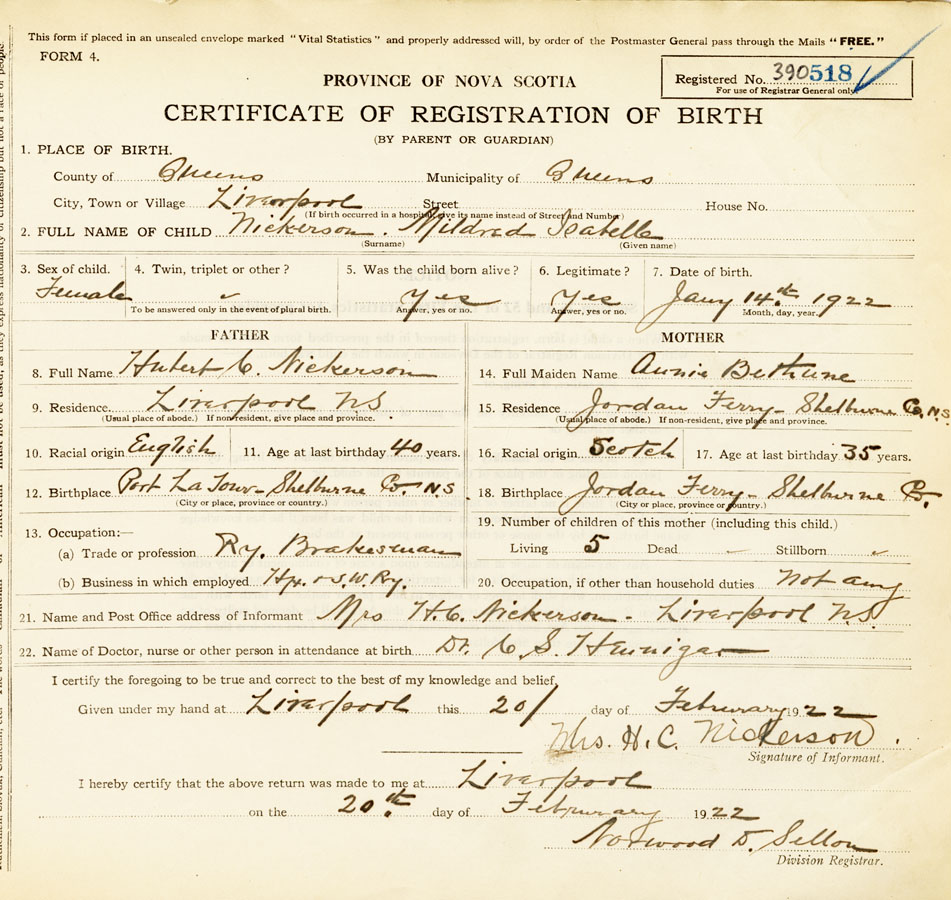 This form if placed in an unsealed envelope marked "Vital Statistics" and properly addressed will, by order of the Postmaster General pass through the Mails "FREE."
FORM 4.
Registered No. 390518
For use of Registrar General only
PROVINCE OF NOVA SCOTIA
CERTIFICATE OF REGISTRATION OF BIRTH
(BY PARENT OR GUARDIAN)
1. PLACE OF BIRTH.
County of Queens Municipality of Queens
City, Town or Village Liverpool Street House No.
(If birth occurred in a hospital, give its name instead of Street and Number)
2. FULL NAME OF CHILD Nickerson. Mildred Isabelle
(Surname) (Given name)
3. Sex of child. 4. Twin, triplet or other? 5. Was the child born alive? 6. Legitimate? 7. Date of birth.
Female Yes Yes Jany 14th 1922
To be answered only in the event of plural birth. Answer, yes or no. Answer, yes or no. Month, day, year.
FATHER MOTHER
8. Full Name Hubert C. Nickerson 14. Full Maiden Name Annie Bethune
9. Residence Liverpool NS 15. Residence Jordan Ferry - Shelburne Co. N.S.
(Usual place of abode.) If non-resident, give place and province. (Usual place of abode.) If non-resident, give place and province.
10. Racial origin English 11. Age at last birthday 40 years. 16. Racial origin Scotch 17. Age at last birthday 35 years.
12. Birthplace Port La Tour - Shelburne Co. N.S 18. Birthplace Jordan Ferry - Shelburne Co.
(City or place, province or country.) (City or place, province or country.)
13. Occupation:— 19. Number of children of this mother (including this child.)
(a) Trade or profession Ry. Brakesman Living 5 Dead - Stillborn
(b) Business in which employed Hx. & S.W. Ry. 20. Occupation, if other than household duties Not any
21. Name and Post Office address of Informant Mrs H.C. Nickerson - Liverpool N.S.
22. Name of Doctor, nurse or other person in attendance at birth Dr. C. S. Hennigar
I certify the foregoing to be true and correct to the best of my knowledge and belief
Given under my hand at Liverpool this 20/ day of Februrary 1922
Mrs. H. C. Nickerson.
Signature of Informant.
I hereby certify that the above return was made to me at Liverpool
on the 20th day of Februrary 1922
Norwood D. Sellon
Division Registrar.